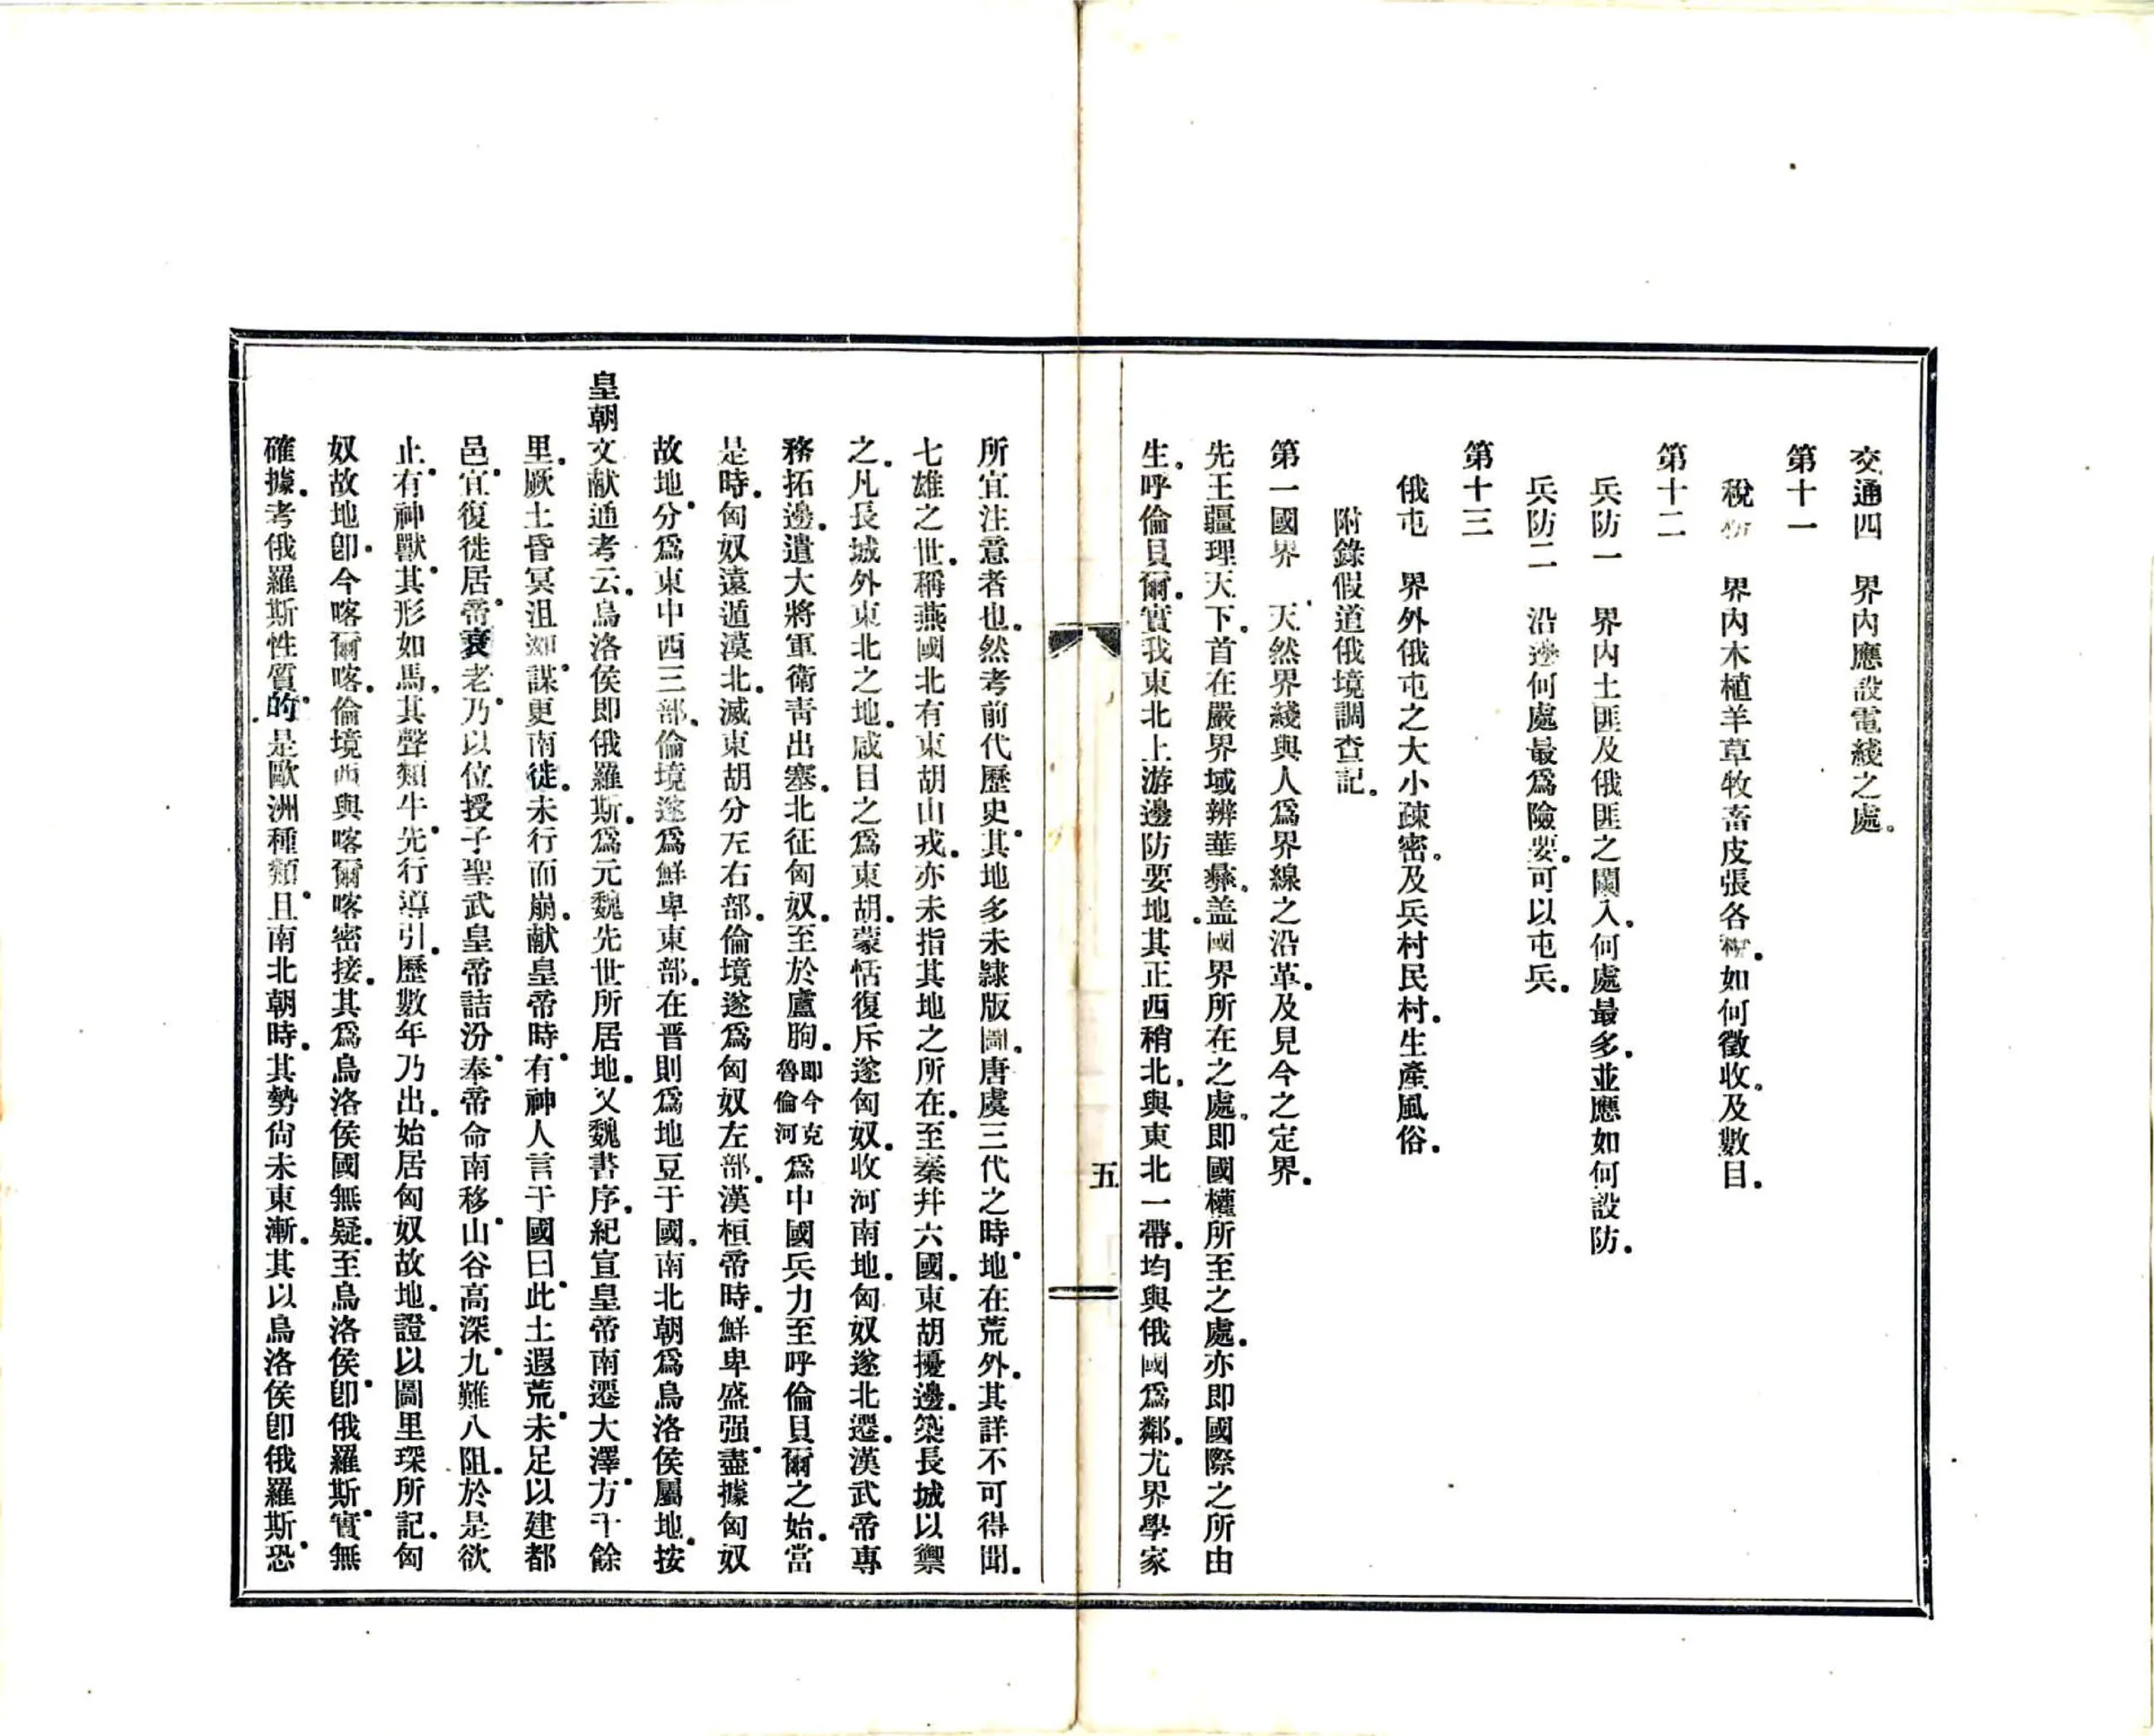 交通四　界內應設電綫之處。
第十一
稅　界內木植羊草牧畜皮張各種。如何徵收。及數目。
第十二
兵防一　界內土匪及俄匪之闌入。何處最多。並應如何設防。
兵防二　沿邊何處最爲險要。可以屯兵。
第十三
俄屯　界外俄屯之大小疎密。及兵村民村。生產風俗。
附錄假道俄境調查記。
第一國界　天然界綫與人爲界線之沿革。及見今之定界。
先王疆理天下。首在嚴界域辨華彝。盖國界所在之處。即國權所至之處。亦即國際之所由
生。呼倫貝爾。實我東北上游邊防要地。其正西稍北。與東北一帶。均與俄國爲鄰。尤界學家
五
所宜注意者也。然考前代歷史。其地多未隸版圖。唐虞三代之時。地在荒外。其詳不可得聞。
七雄之世。稱燕國北有東胡山戎。亦未指其地之所在。至秦幷六國。東胡擾邊。築長城以禦
之。凡長城外東北之地。咸目之爲東胡。蒙恬復斥逐匈奴。收河南地。匈奴遂北遷。漢武帝專
務拓邊。遣大將軍衛靑出塞。北征匈奴。至於盧朐。即今克魯倫河爲中國兵力至呼倫貝爾之始。當
是時。匈奴遠遁漠北。滅東胡分左右部。倫境遂爲匈奴左部。漢桓帝時。鮮卑盛强。盡據匈奴
故地。分爲東中西三部。倫境遂爲鮮卑東部。在晋則爲地豆于國。南北朝爲烏洛侯屬地。按
皇朝文献通考云。烏洛侯即俄羅斯。爲元魏先世所居地。又魏書序。紀宣皇帝南遷大澤。方千餘
里。厥土昏冥沮洳。謀更南徙。未行而崩。献皇帝時。有神人言于國曰。此土遐荒。未足以建都
邑。宜復徙居。帝衰老。乃以位授子聖武皇帝詰汾。奉帝命南移。山谷高深。九難八阻。於是欲
止。有神獸。其形如馬。其聲類牛。先行導引。歷數年乃出。始居匈奴故地。證以圖里琛所記。匈
奴故地卽。今喀爾喀。倫境西與喀爾喀密接。其爲烏洛侯國無疑。至烏洛侯。卽俄羅斯。實無
確據。考俄羅斯性質。的是歐洲種類。且南北朝時。其勢尙未東漸。其以烏洛侯卽俄羅斯。恐